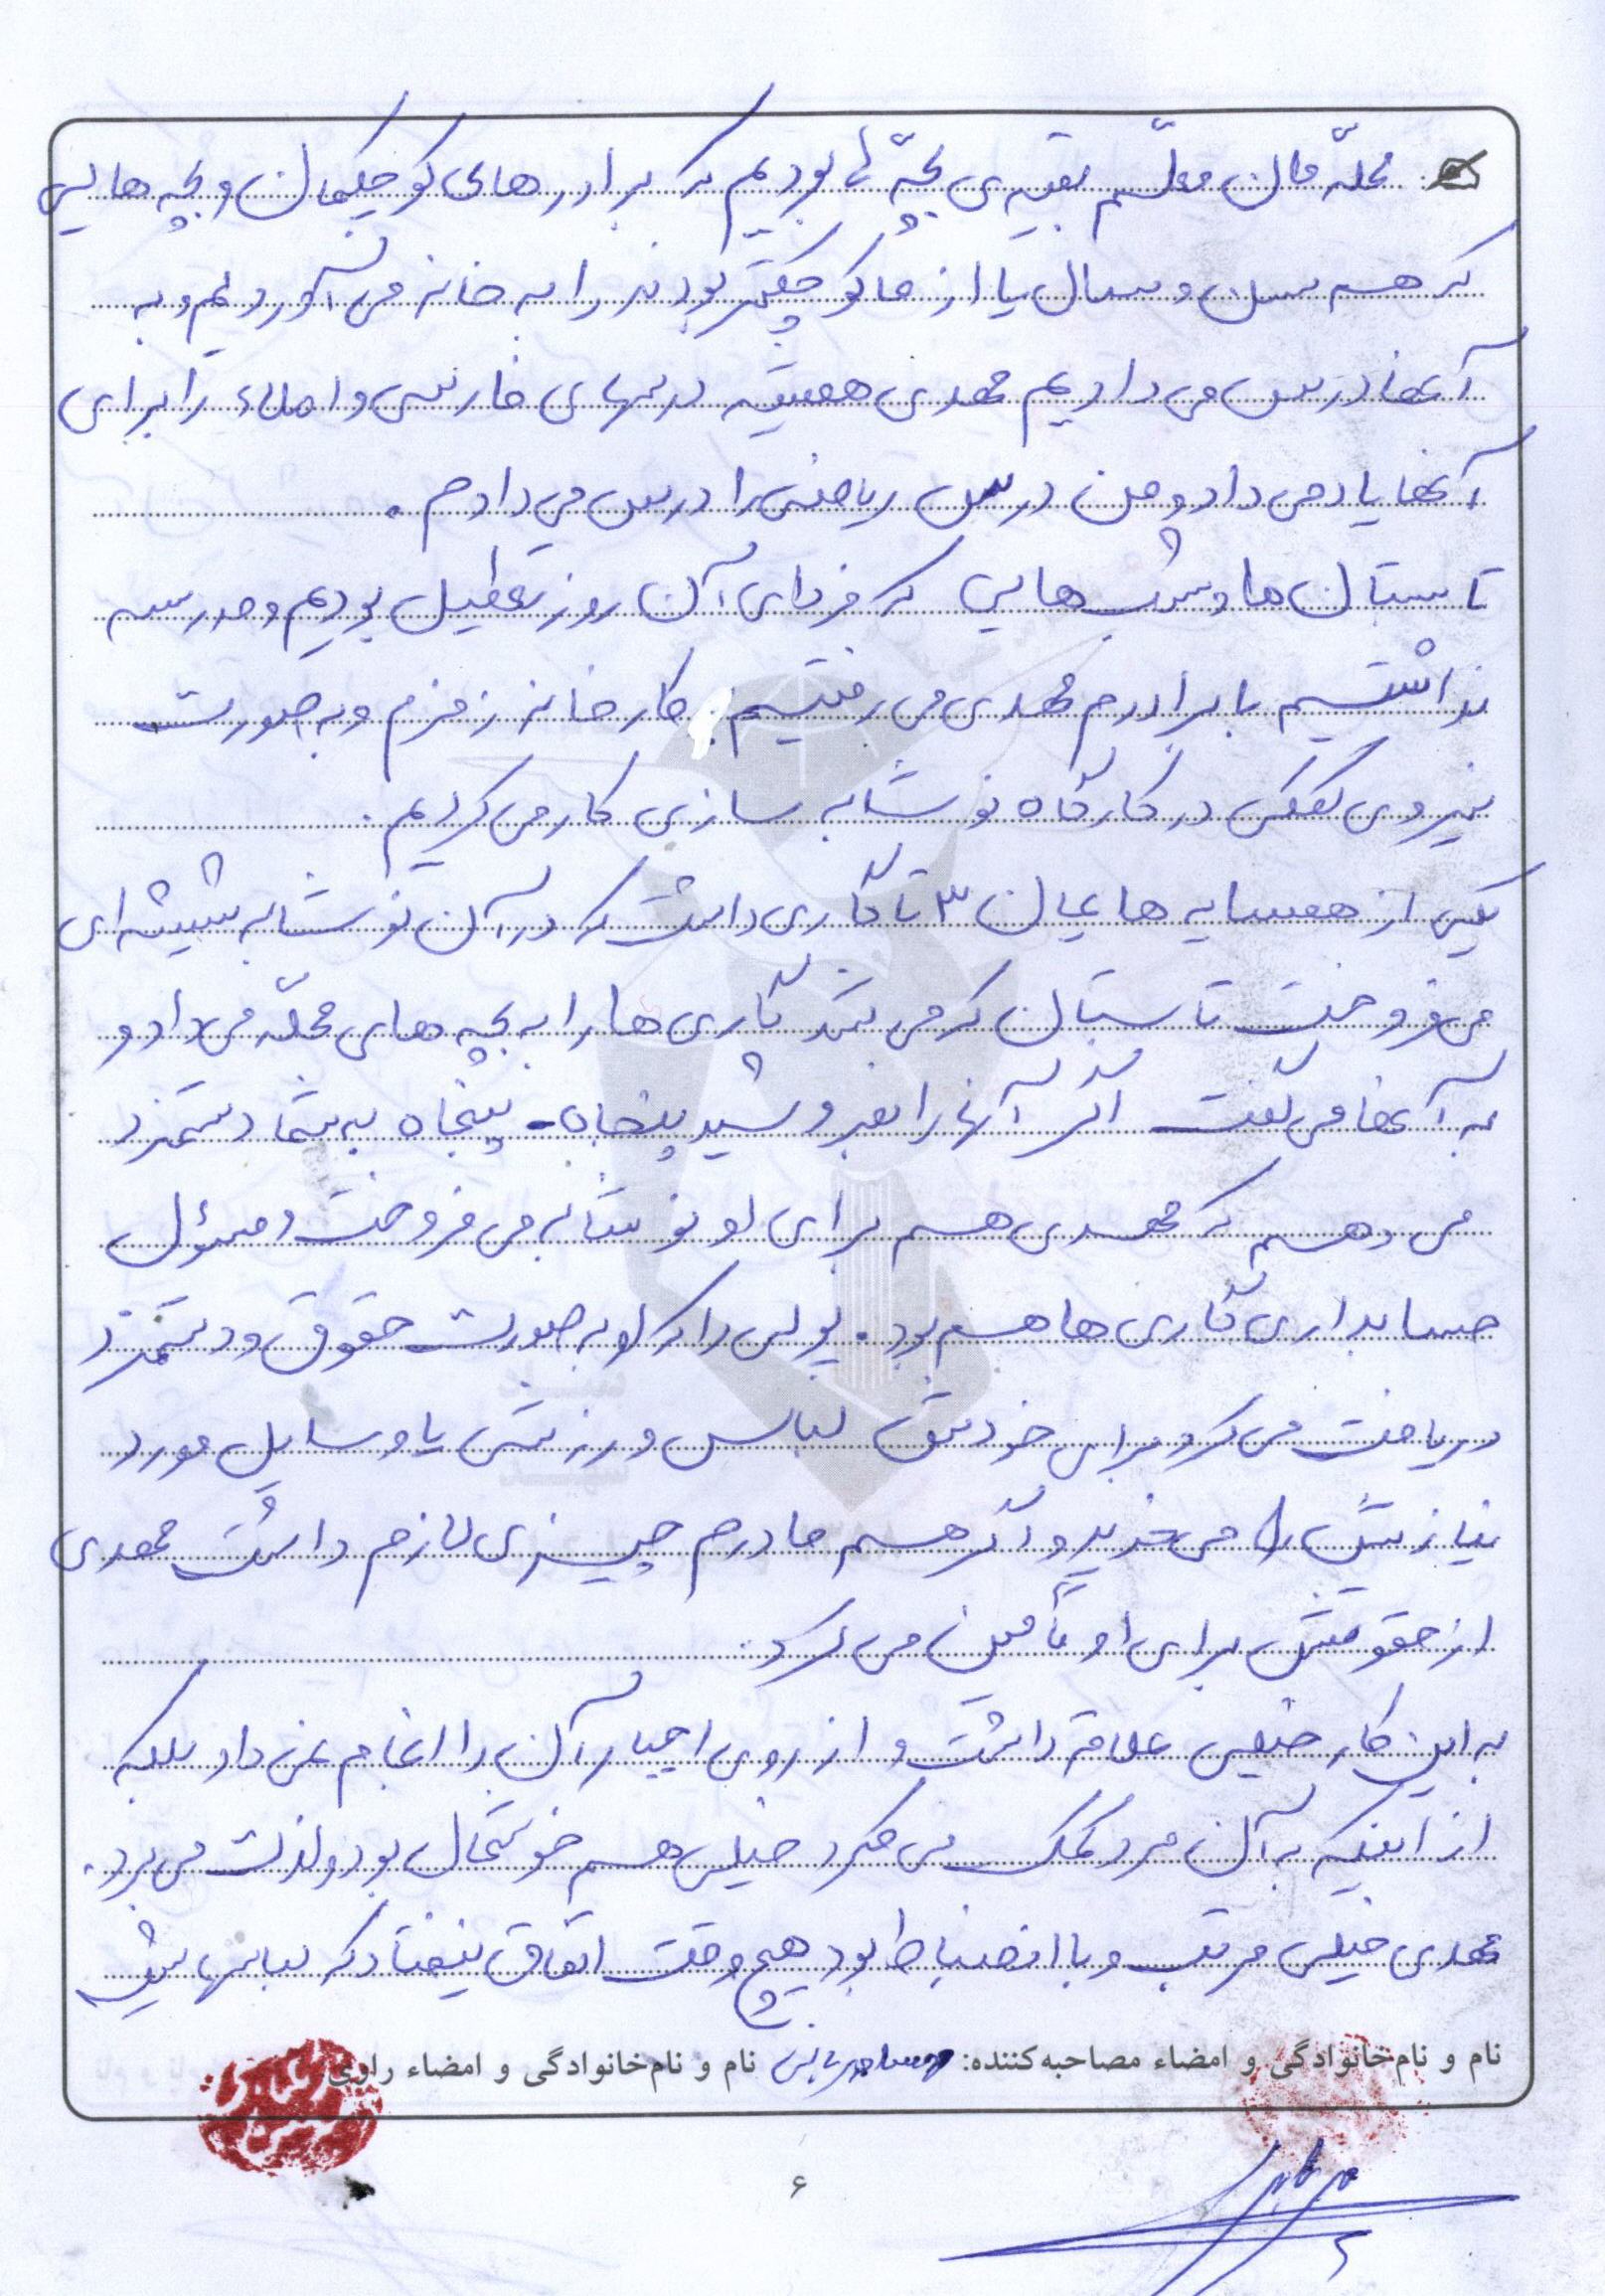 محلّه مان معلّم بقیه ی بچّه ها بودیم که برادرهای کوچکمان و بچه هایی
که هم سن و سال یا از ما کوچکتر بودند را به خانه می آوردیم و به
آنها درس می دادیم مهدی همیشه درسهای فارسی و املاء را برای
آنها یاد می داد و من درس ریاضی را درس می دادم .
تابستان ها و شب هایی که فردای آن روز تعطیل بودیم و مدرسه
نداشتیم با برادرم مهدی می رفتیم کارخانه زمزم و به صورت
نیروی کمکی در کارگاه نوشابه سازی کار می کردیم .
یکی از همسایه هایمان ۳ تا گاری داشت که در آن نوشابه شیشه ای
می فروخت تابستان که می شد گاری ها را به بچه های محلّه می داد و
به آنها می گفت اگر آنها را بفروشید پنجاه - پنجاه به شما دستمزد
می دهم که مهدی هم برای او نوشابه می فروخت و مسئول
حسابداری گاری ها هم بود . پولی را که او به صورت حقوق و دستمزد
دریافت می کرد برای خودش لباس ورزشی یا وسایل مورد
نیازش را می خرید و اگر هم مادرم چیزی لازم داشت مهدی
از حقوقش برای او تأمین می کرد .
به این کار خیلی علاقه داشت و از روی اجبار آن را انجام نمی داد بلکه
از اینکه به آن مرد کمک می کرد خیلی هم خوشحال بود و لذت می برد .
مهدی خیلی مرتب و با انضباط بود هیچ وقت اتفاق نیفتاد که لباسهایش
نام و نام‌خانوادگی و امضاء مصاحبه‌کننده: نام و نام‌خانوادگی و امضاء راوی
۶